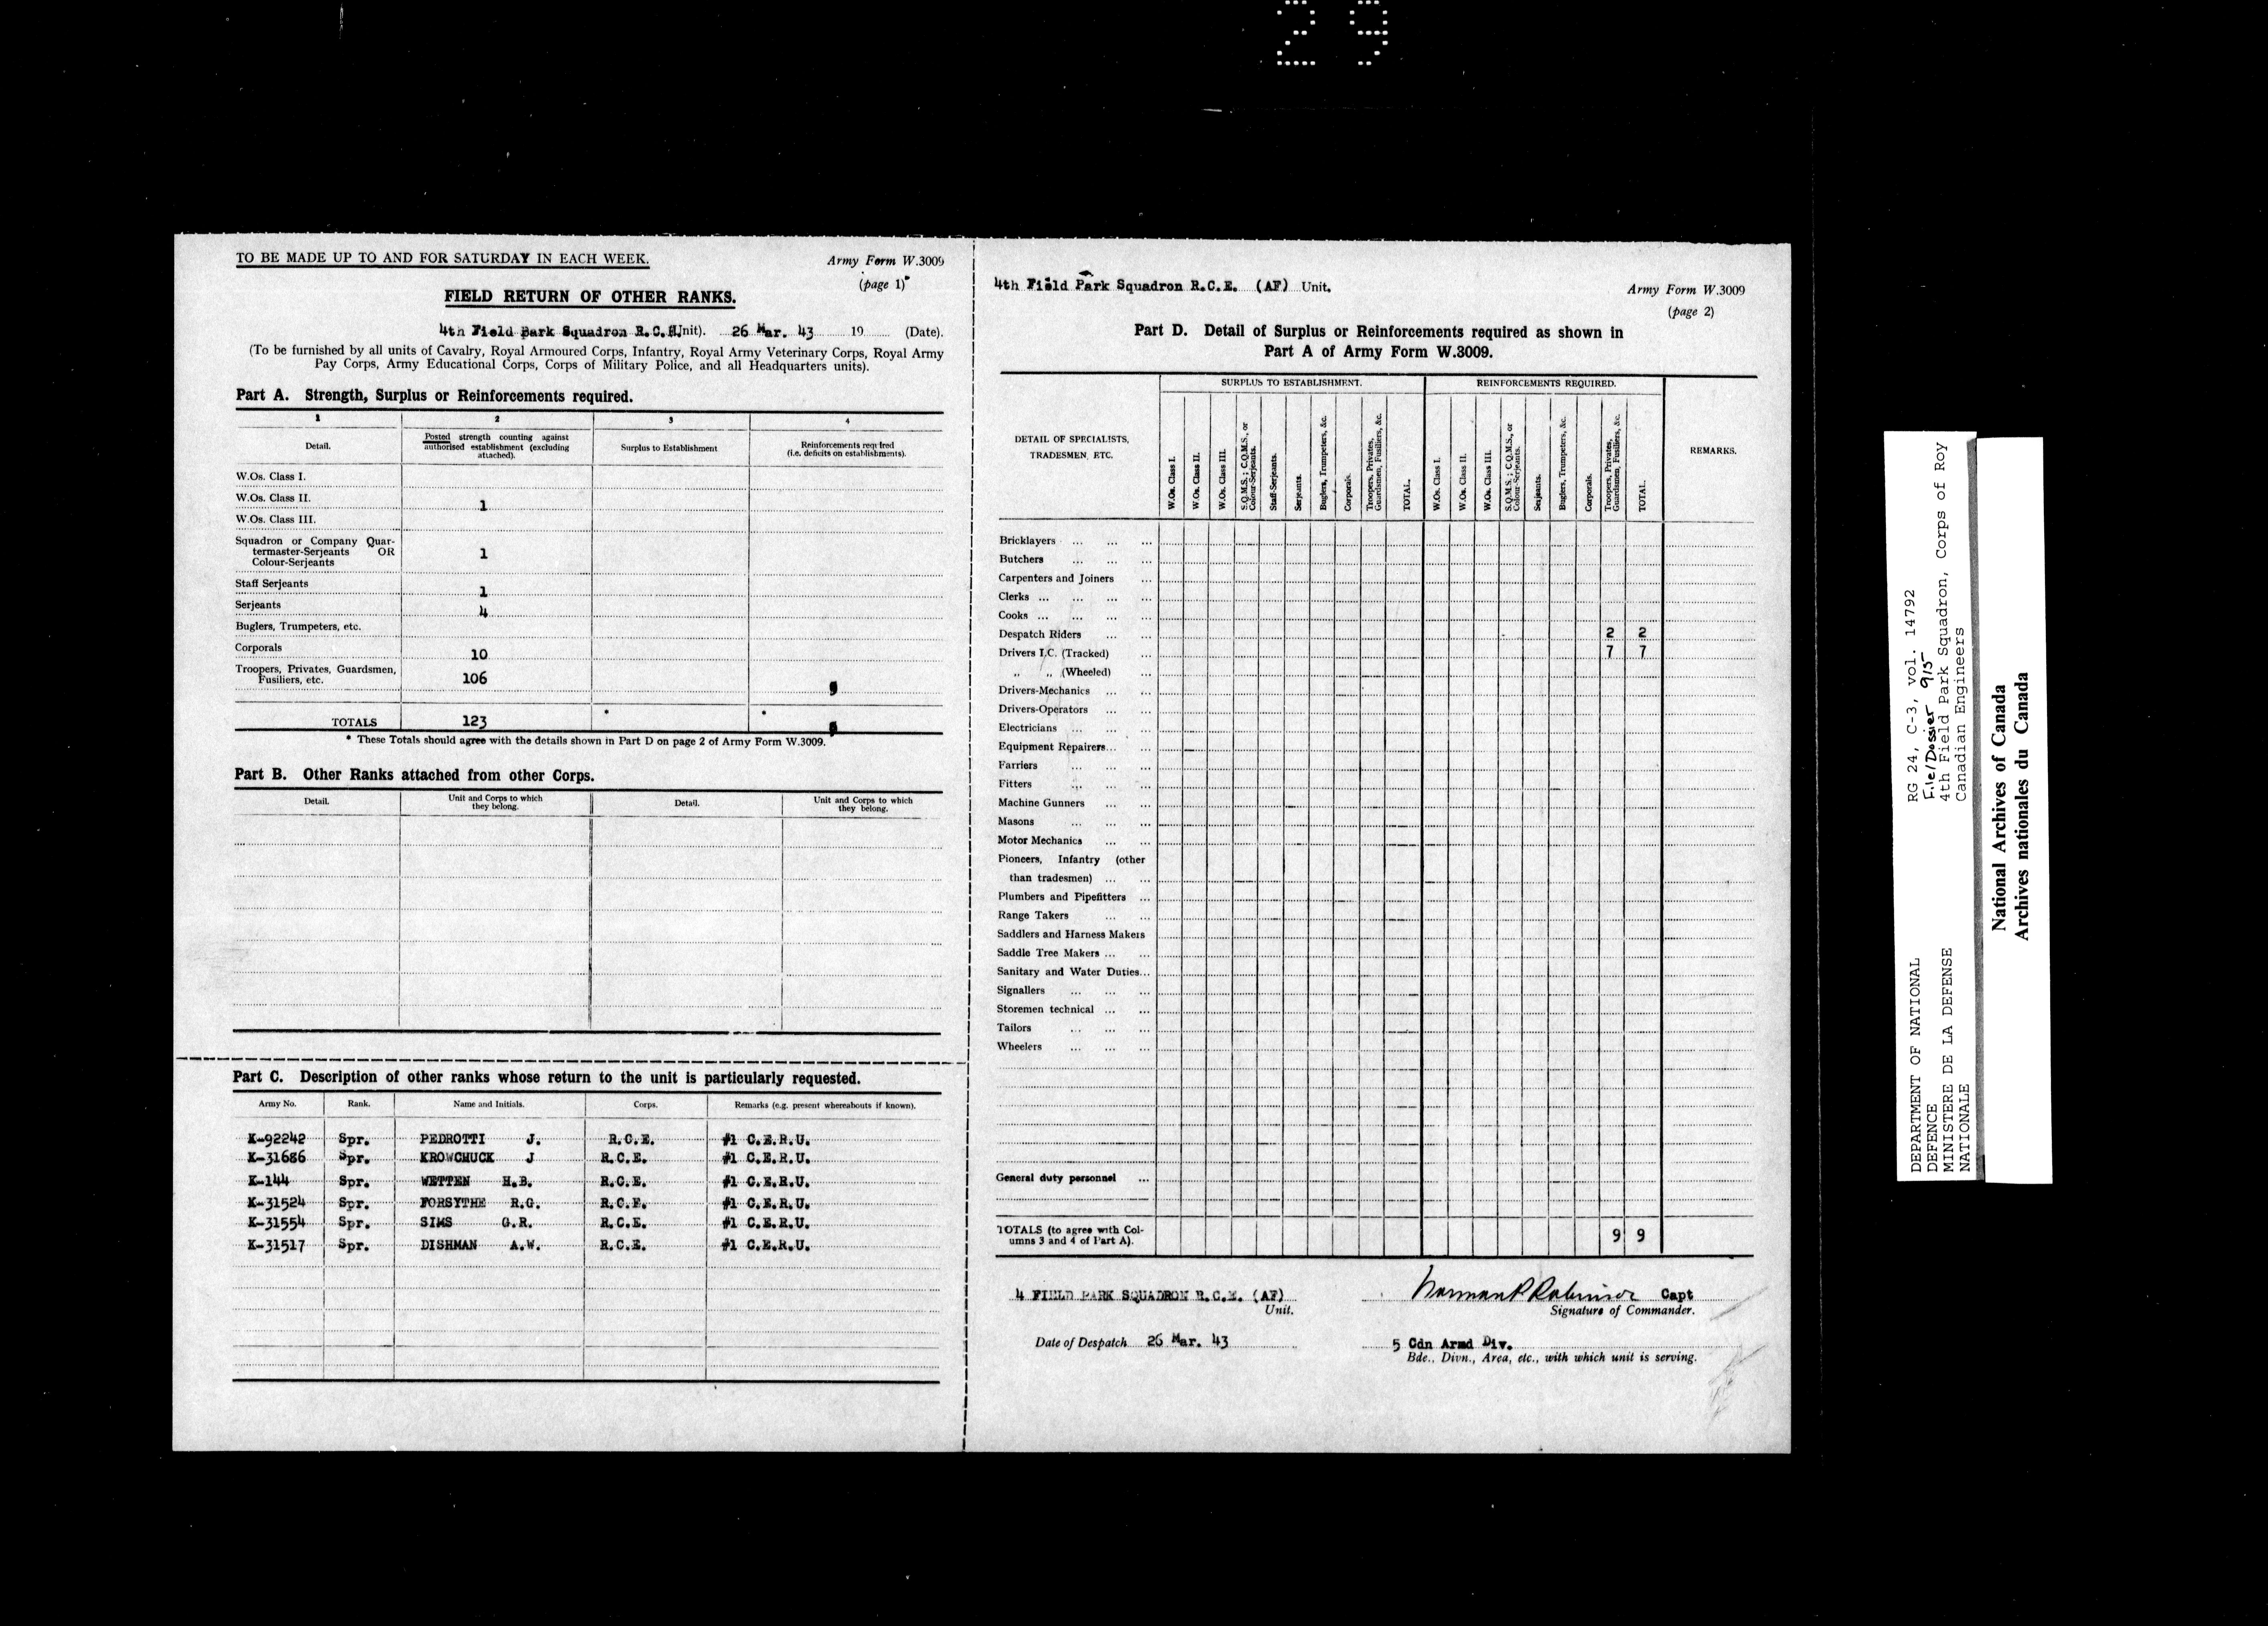 29
TO BE MADE UP TO AND FOR SATURDAY IN EACH WEEK.
Army Form W.3009
(page 1)
FIELD RETURN OF OTHER RANKS.
4th Field Park Squadron R.C.E. (Unit). 26 Mar. 43 19 (Date).
(To be furnished by all units of Cavalry, Royal Armoured Corps, Infantry, Royal Army Veterinary Corps, Royal Army
Pay Corps, Army Educational Corps, Corps of Military Police, and all Headquarters units).
Part A. Strength, Surplus or Reinforcements required.
1 2 3 4
Detail. Posted strength counting against authorised establishment (excluding attached). Surplus to Establishment Reinforcements required (i.e. deficits on establishments).
W.Os. Class I.
W.Os. Class II. 1
W.Os. Class III.
Squadron or Company Quar-
termaster-Serjeants OR 1
Colour-Serjeants
Staff Serjeants 1
Serjeants 4
Buglers, Trumpeters, etc.
Corporals 10
Troopers, Privates, Guardsmen,
Fusiliers, etc. 106 9
TOTALS 123 * * 9
* These Totals should agree with the details shown in Part D on page 2 of Army Form W.3009.
Part B. Other Ranks attached from other Corps.
Detail. Unit and Corps to which they belong. Detail. Unit and Corps to which they belong.
Part C. Description of other ranks whose return to the unit is particularly requested.
Army No. Rank. Name and Initials. Corps. Remarks (e.g. present whereabouts if known).
K-92242 Spr. PEDROTTI J. R.C.E. #1 C.E.R.U.
K-31686 Spr. KROWCHUCK J R.C.E. #1 C.E.R.U.
K-144 Spr. WETTEN H.B. R.C.E. #1 C.E.R.U.
K-31524 Spr. FORSYTHE R.G. R.C.E. #1 C.E.R.U.
K-31554 Spr. SIMS G.R. R.C.E. #1 C.E.R.U.
K-31517 Spr. DISHMAN A.W. R.C.E. #1 C.E.R.U.
4th Field Park Squadron R.C.E. (AF) Unit.
Army Form W.3009
(page 2)
Part D. Detail of Surplus or Reinforcements required as shown in
Part A of Army Form W.3009.
DETAIL OF SPECIALISTS, TRADESMEN, ETC.
SURPLUS TO ESTABLISHMENT.
REINFORCEMENTS REQUIRED.
REMARKS.
W.Os. Class I.
W.Os. Class II.
W.Os. Class III.
S.Q.M.S.; C.Q.M.S., or Colour-Serjeants.
Staff-Serjeants.
Serjeants.
Buglers, Trumpeters, &c.
Corporals.
Troopers, Privates, Guardsmen, Fusiliers, &c.
TOTAL.
W.Os. Class I.
W.Os. Class II.
W.Os. Class III.
S.Q.M.S.; C.Q.M.S., or Colour-Serjeants.
Serjeants.
Buglers, Trumpeters, &c.
Corporals.
Troopers, Privates, Guardsmen, Fusiliers, &c.
TOTAL.
Bricklayers ... ... ...
Butchers ... ... ...
Carpenters and Joiners ...
Clerks ... ... ... ...
Cooks ... ... ... ...
Despatch Riders ... ... 2 2
Drivers I.C. (Tracked) ... 7 7
„ „ (Wheeled) ...
Drivers-Mechanics ... ...
Drivers-Operators ... ...
Electricians ... ... ...
Equipment Repairers... ...
Farriers ... ... ...
Fitters ... ... ...
Machine Gunners ... ...
Masons ... ... ...
Motor Mechanics ... ...
Pioneers, Infantry (other
than tradesmen) ... ...
Plumbers and Pipefitters ...
Range Takers ... ...
Saddlers and Harness Makers
Saddle Tree Makers ... ...
Sanitary and Water Duties...
Signallers ... ... ...
Storemen technical ... ...
Tailors ... ... ...
Wheelers ... ... ...
General duty personnel ...
TOTALS (to agree with Col-
umns 3 and 4 of Part A). 9 9
4 FIELD PARK SQUADRON R.C.E. (AF)
Unit.
Norman P Robinson Capt
Signature of Commander.
Date of Despatch 26 Mar. 43
5 Cdn Armd Div.
Bde., Divn., Area, etc., with which unit is serving.
DEPARTMENT OF NATIONAL
DEFENCE
MINISTERE DE LA DEFENSE
NATIONALE
RG 24, C-3, vol. 14792
File/Dossier 915
4th Field Park Squadron, Corps of Roy
Canadian Engineers
National Archives of Canada
Archives nationales du Canada